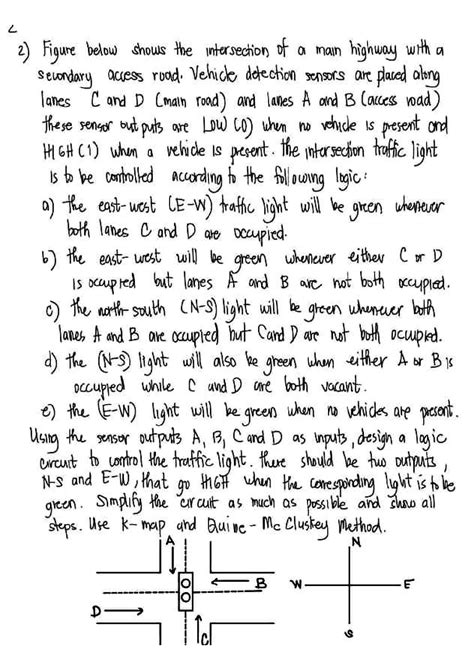 2) Figure below shows the intersection of a main highway with a
secondary access road. Vehicle detection sensors are placed along
lanes C and D (main road) and lanes A and B (access road)
these sensor outputs are LOW (0) when no vehicle is present and
HIGH (1) when a vehicle is present. the intersection traffic light
is to be controlled according to the following logic:
a) the east-west (E-W) traffic light will be green whenever
both lanes C and D are occupied.
b) the east-west will be green whenever either C or D
is occupied but lanes A and B are not both occupied.
c) the north-south (N-S) light will be green whenever both
lanes A and B are occupied but C and D are not both ocupied.
d) the (N-S) light will also be green when either A or B is
occupied while C and D are both vacant.
e) the (E-W) light will be green when no vehicles are present.
Using the sensor outputs A, B, C and D as inputs, design a logic
circuit to control the traffic light. there should be two outputs,
N-S and E-W, that go HIGH when the corresponding light is to be
green. Simplify the circuit as much as possible and show all
steps. Use k-map and Quine-McCluskey Method.
A
N
B
W
E
D
C
S